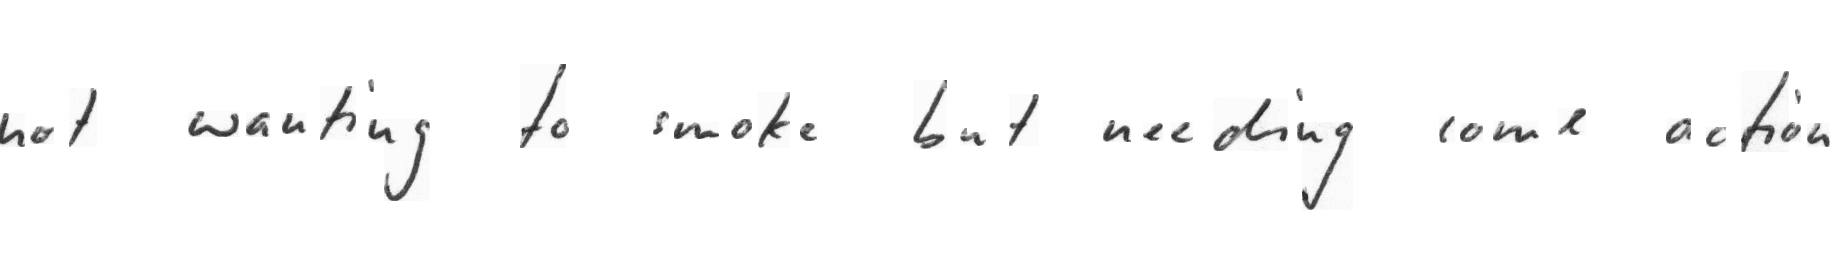 not wanting to smoke but needing some action